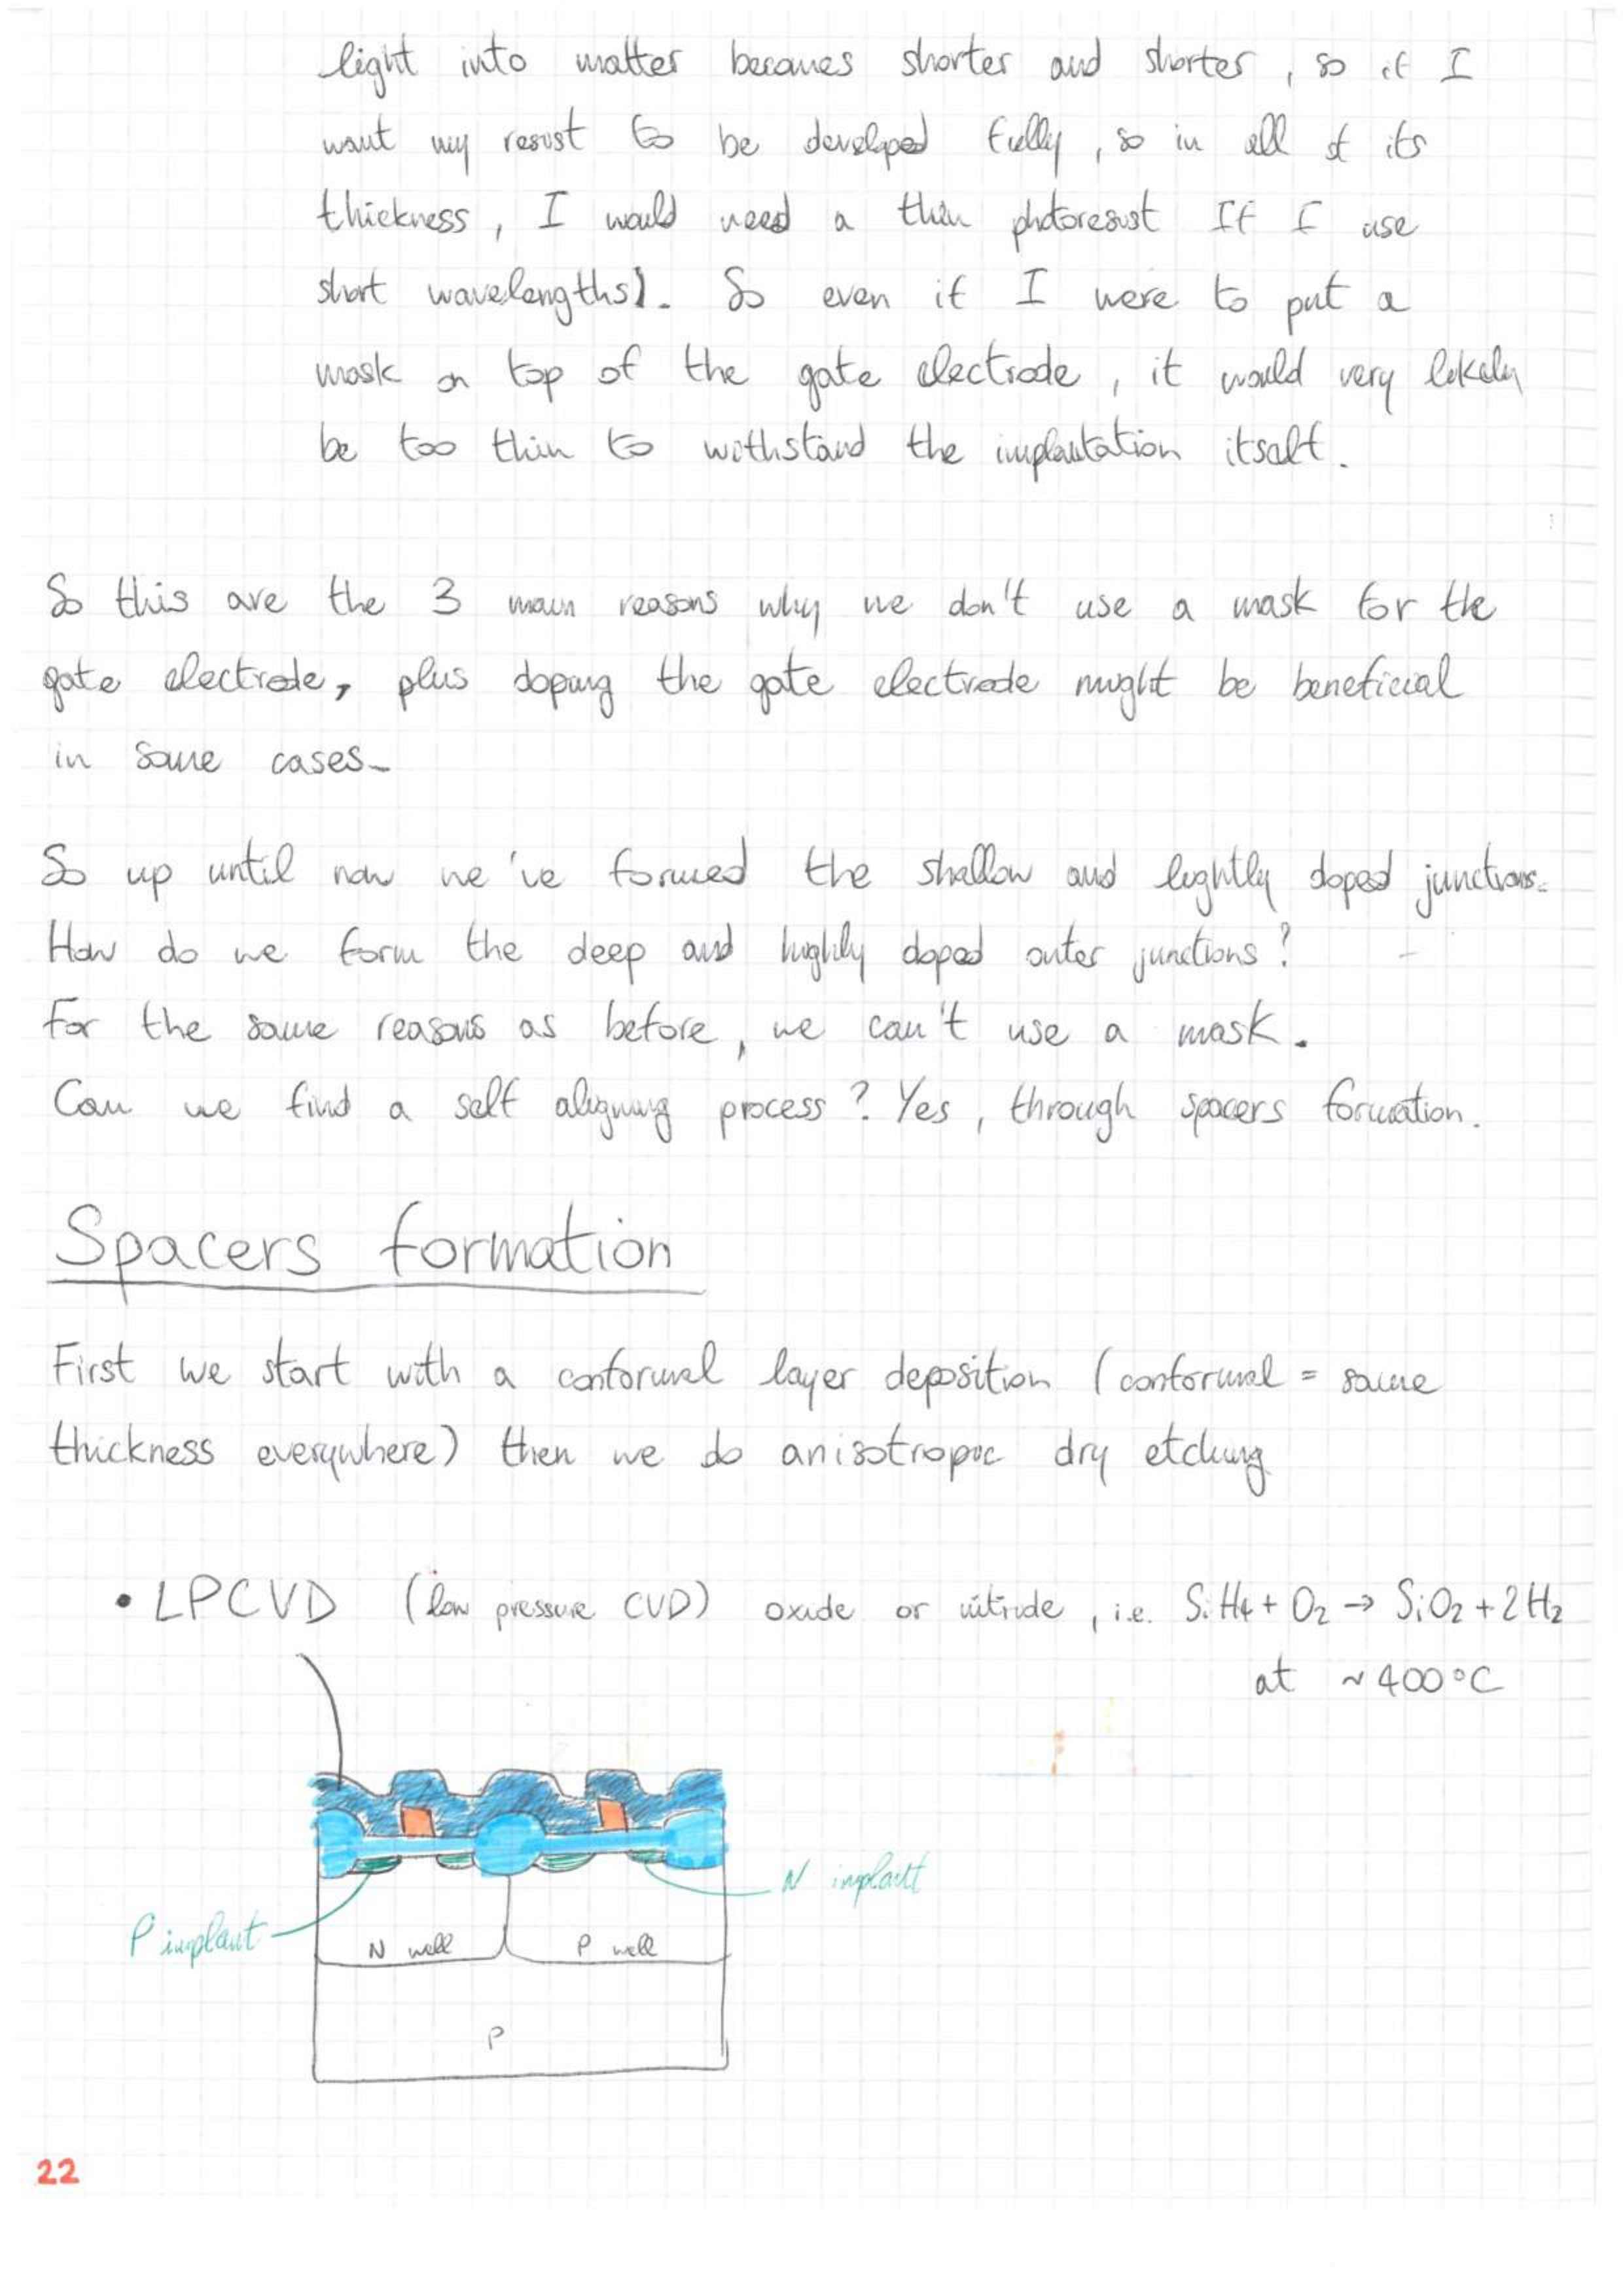 light into matter becomes shorter and shorter, so if I
want my resist to be developed fully, so in all of its
thickness, I would need a thin photoresist If I use
short wavelengths). So even if I were to put a
mask on top of the gate electrode, it would very likely
be too thin to withstand the implantation itself.
So this are the 3 main reasons why we don't use a mask for the
gate electrode, plus doping the gate electrode might be beneficial
in some cases.
So up until now we've formed the shallow and lightly doped junctions.
How do we form the deep and highly doped outer junctions?
For the same reasons as before, we can't use a mask.
Can we find a self aligning process? Yes, through spacers formation.
Spacers formation
First we start with a conformal layer deposition (conformal = same
thickness everywhere) then we do anisotropic dry etching
• LPCVD (low pressure CVD) oxide or nitride, i.e. SiH₄ + O₂ → SiO₂ + 2H₂
at ~400°C
N implant
P implant
N well P well
P
22